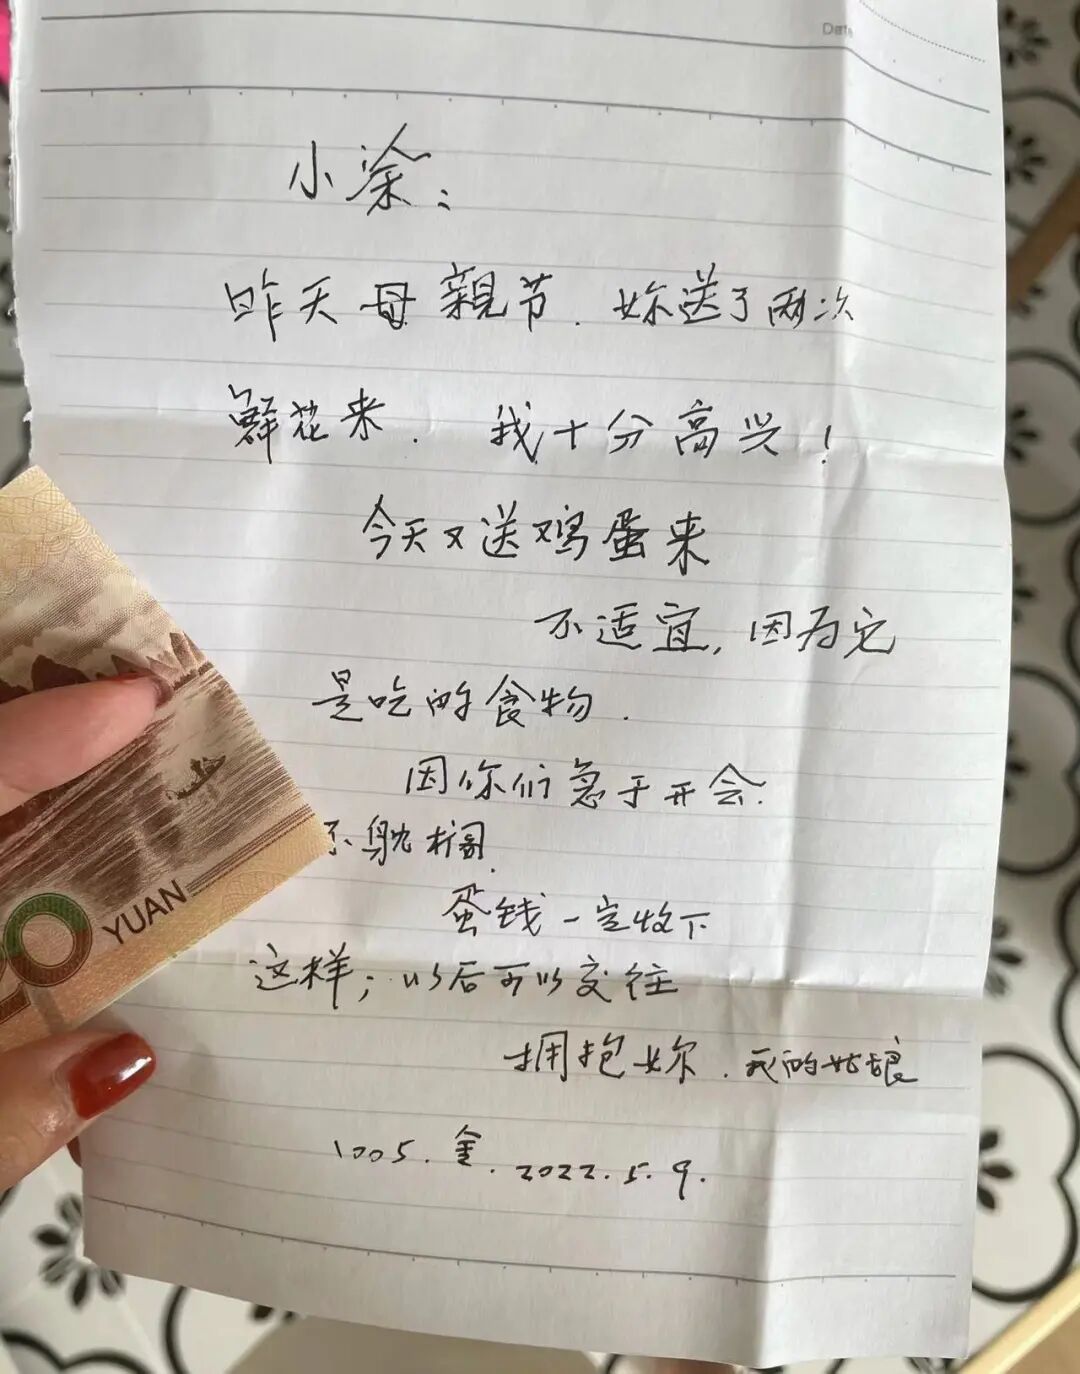 Date
小涂：
昨天母親节．妳送了两次
鲜花来．我十分高兴！
今天又送鸡蛋来
不适宜，因为它
是吃的食物．
因你们急于开会．
不躭搁．
蛋钱一定收下
这样；以后可以交往
拥抱妳．我的姑娘
1005．金．2022.5.9.
20 YUAN